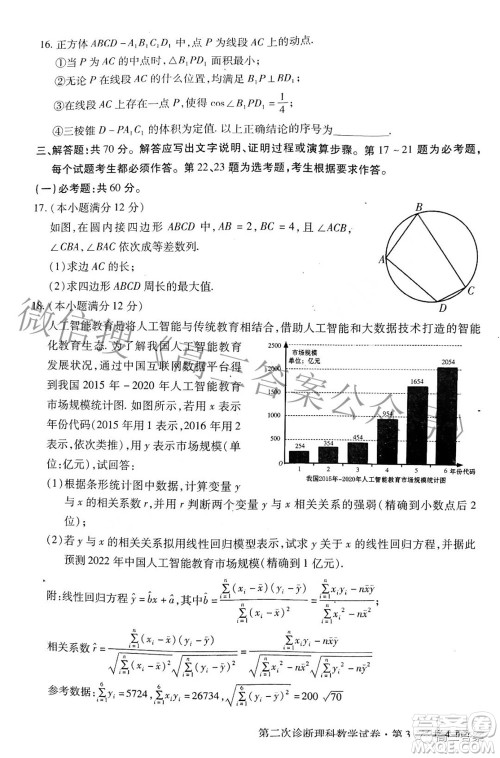 16. 正方体 ABCD-A₁B₁C₁D₁ 中，点 P 为线段 AC 上的动点.
①当点 P 为线段 AC 的中点时，△B₁PD₁ 的面积最小；
②无论 P 在线段 AC 的什么位置，均满足
③当点 P 与线段 AC 的端点重合时，cos∠B₁PD₁ = 1/4；
④三棱锥 D-PA₁C₁ 的体积为定值. 以上正确结论的序号为
三、解答题：共 70 分。解答应写出文字说明、证明过程或演算步骤。第 17~21 题为必考题，
每个试题考生都必须作答。第 22、23题为选考题，考生根据要求作答。
(一)必考题：共 60 分。
17. (本小题满分 12 分)
如图，在圆内接四边形 ABCD 中，AB = 2，BC = 4，且 ∠ACB，
∠CBA，∠BAC 依次成等差数列.
(1)求边 AC 的长；
(2)求四边形 ABCD 周长的最大值.
A
B
C
D
18. (本小题满分 12 分)
人工智能教育是将人工智能与传统教育相结合，借助人工智能和大数据技术打造的智能
化教育生态. 为了解我国人工智能教育
发展状况，通过中国互联网数据平台得
到我国 2015 年-2020 年人工智能教育
市场规模统计图. 如图所示，若用 x 表示
年份代码(2015 年用 1 表示，2016 年用 2
表示)，用 y 表示市场规模(单
位：亿元)，试回答：
市场规模
单位：亿元
2500
2000
1500
1000
500
0
254
354
454
954
1654
2054
1 2 3 4 5 6 年份代码
我国2015年-2020年人工智能教育市场规模统计图
(1)根据条形统计图中数据，计算变量 y
与 x 的相关系数 r，并用 r 判断两个变量 y 与 x 相关关系的强弱(精确到小数点后 2
位)；
(2)若变量 y 与 x 的相关关系拟用线性回归模型表示，试求 y 关于 x 的线性回归方程，并据
此预测 2022 年中国人工智能教育市场规模(精确到 1 亿元).
附：线性回归方程 ŷ = b̂x + â，其中 b̂ = Σ(xᵢ - x̄)(yᵢ - ȳ) / Σ(xᵢ - x̄)² = (Σxᵢyᵢ - nx̄ȳ) / (Σxᵢ² - nx̄²)
参考数据：Σyᵢ = 5724，Σxᵢyᵢ = 26734，= 200√70
第二次诊断理科数学试卷·第 3
微信搜《高三答案公众号》
高三答案